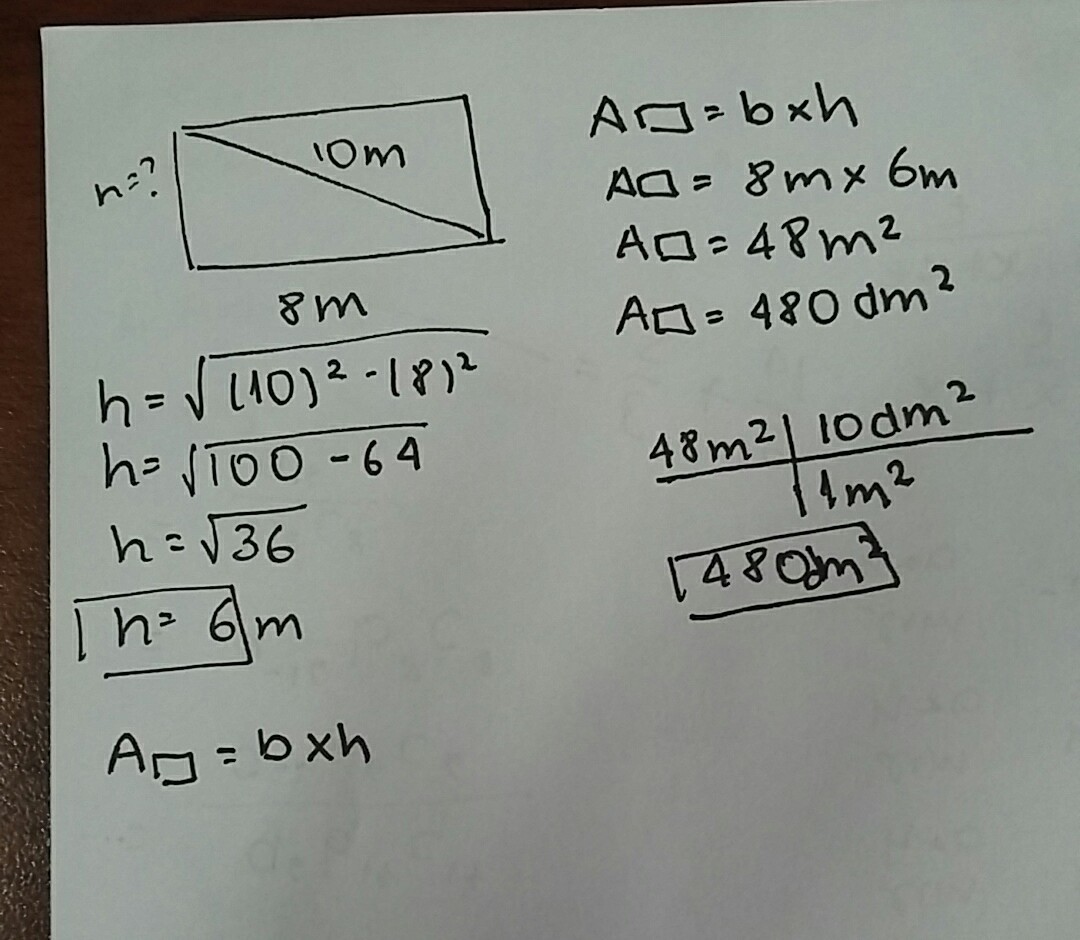 h=?
10m
8m
h=√(10)²-(8)²
h=√100-64
h=√36
h= 6m
A▭=b×h
A▭=b×h
A▭= 8m× 6m
A▭=48m²
A▭= 480 dm²
48m²| 10dm²
|1m²
480dm²